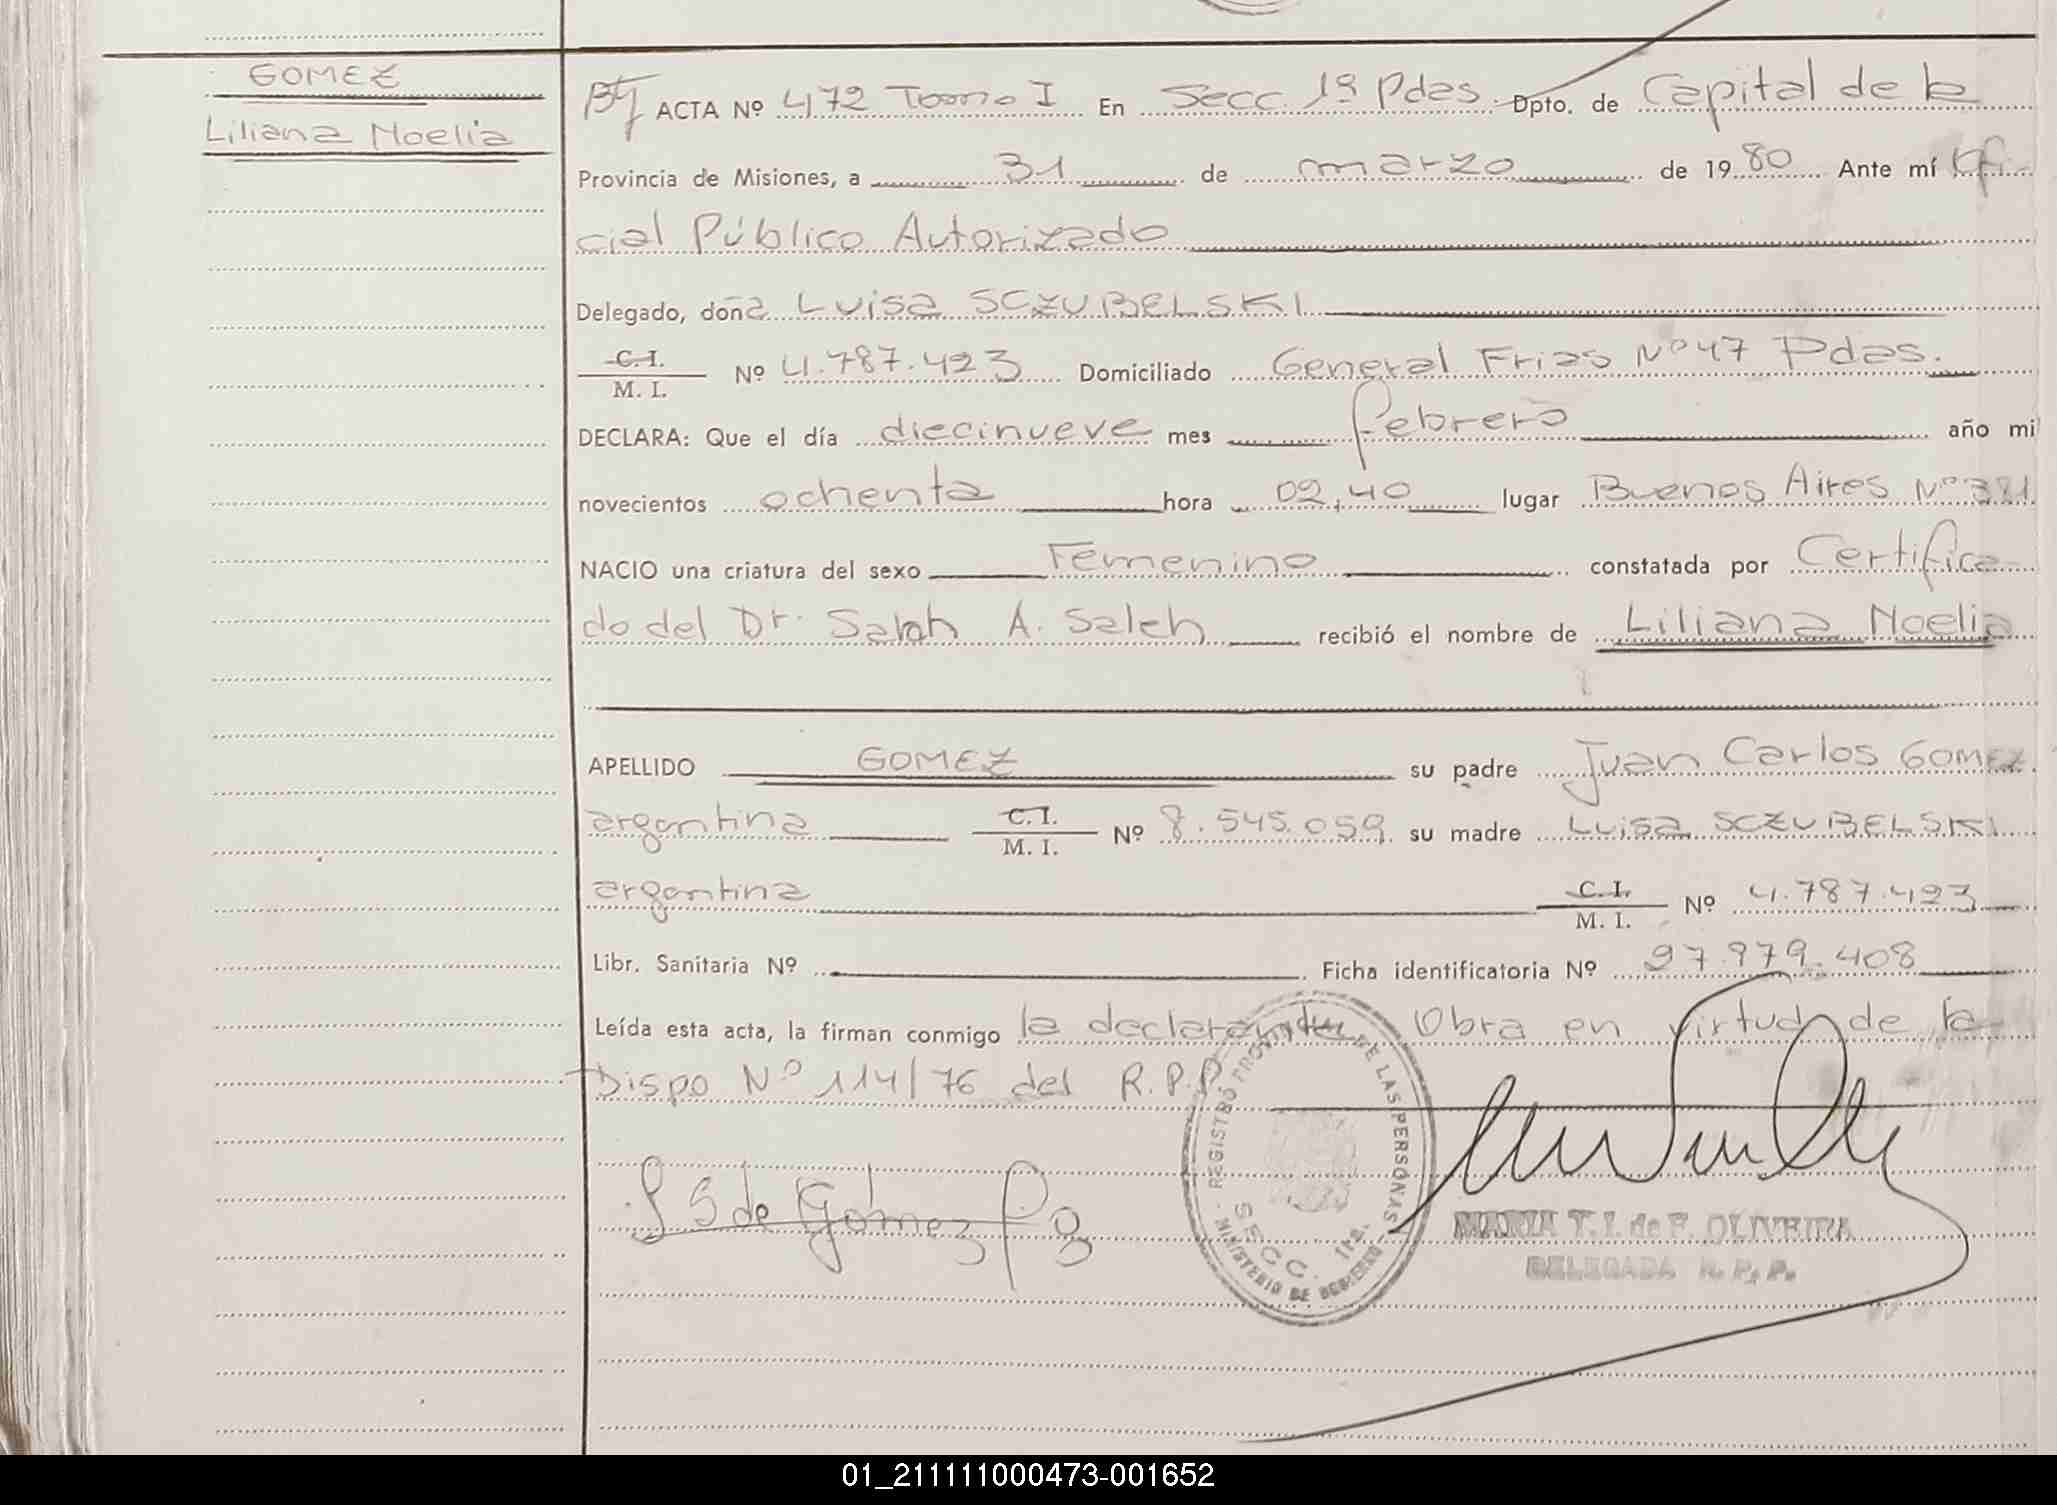 GOMEZ
Liliana Noelia
ACTA Nº 472 Tomo I En Secc. 1ª Pdas. Dpto. de Capital de la
Provincia de Misiones, a 31 de marzo de 1980 Ante mí Ofi-
cial Público Autorizado
Delegado, doña Luisa SCZUBELSKI
C. I.
M. I. Nº 4.787.423 Domiciliado General Frias Nº 47 Pdas.
DECLARA: Que el día diecinueve mes febrero año mil
novecientos ochenta hora 02,40 lugar Buenos Aires Nº 381
NACIO una criatura del sexo Femenino constatada por Certifica-
do del Dr. Salah A. Saleh recibió el nombre de Liliana Noelia
APELLIDO GOMEZ su padre Juan Carlos GOMEZ
argentina C. I.
M. I. Nº 8.545.059 su madre Luisa SCZUBELSKI
argentina C. I.
M. I. Nº 4.787.423
Libr. Sanitaria Nº Ficha identificatoria Nº 27.979.408
Leída esta acta, la firman conmigo la declarante. Obra en virtud de la
Dispo Nº 114/76 del R.P.P.
L S de Gómez
REGISTRO PROVINCIAL DE LAS PERSONAS
SECC. 1ra.
MINISTERIO DE GOBIERNO
MARIA T. I. de F. OLIVEIRA
DELEGADA R. P. P.
01_211111000473-001652